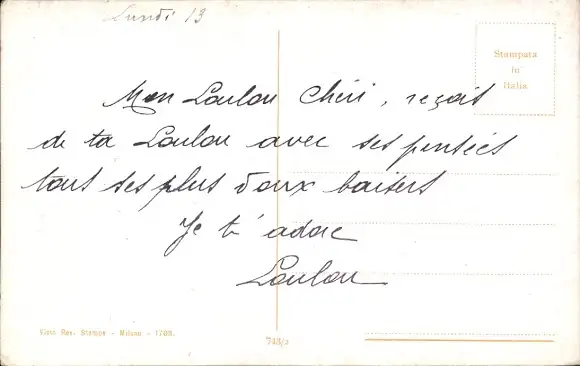 Lundi 13
Stampata
in
Italia
Mon Loulou Chéri, reçoit
de ta Loulou avec ses pensées
tous ses plus doux baisers
Je t'adore
Loulou
Visto Rev. Stampa - Milano - 1708.
743/2